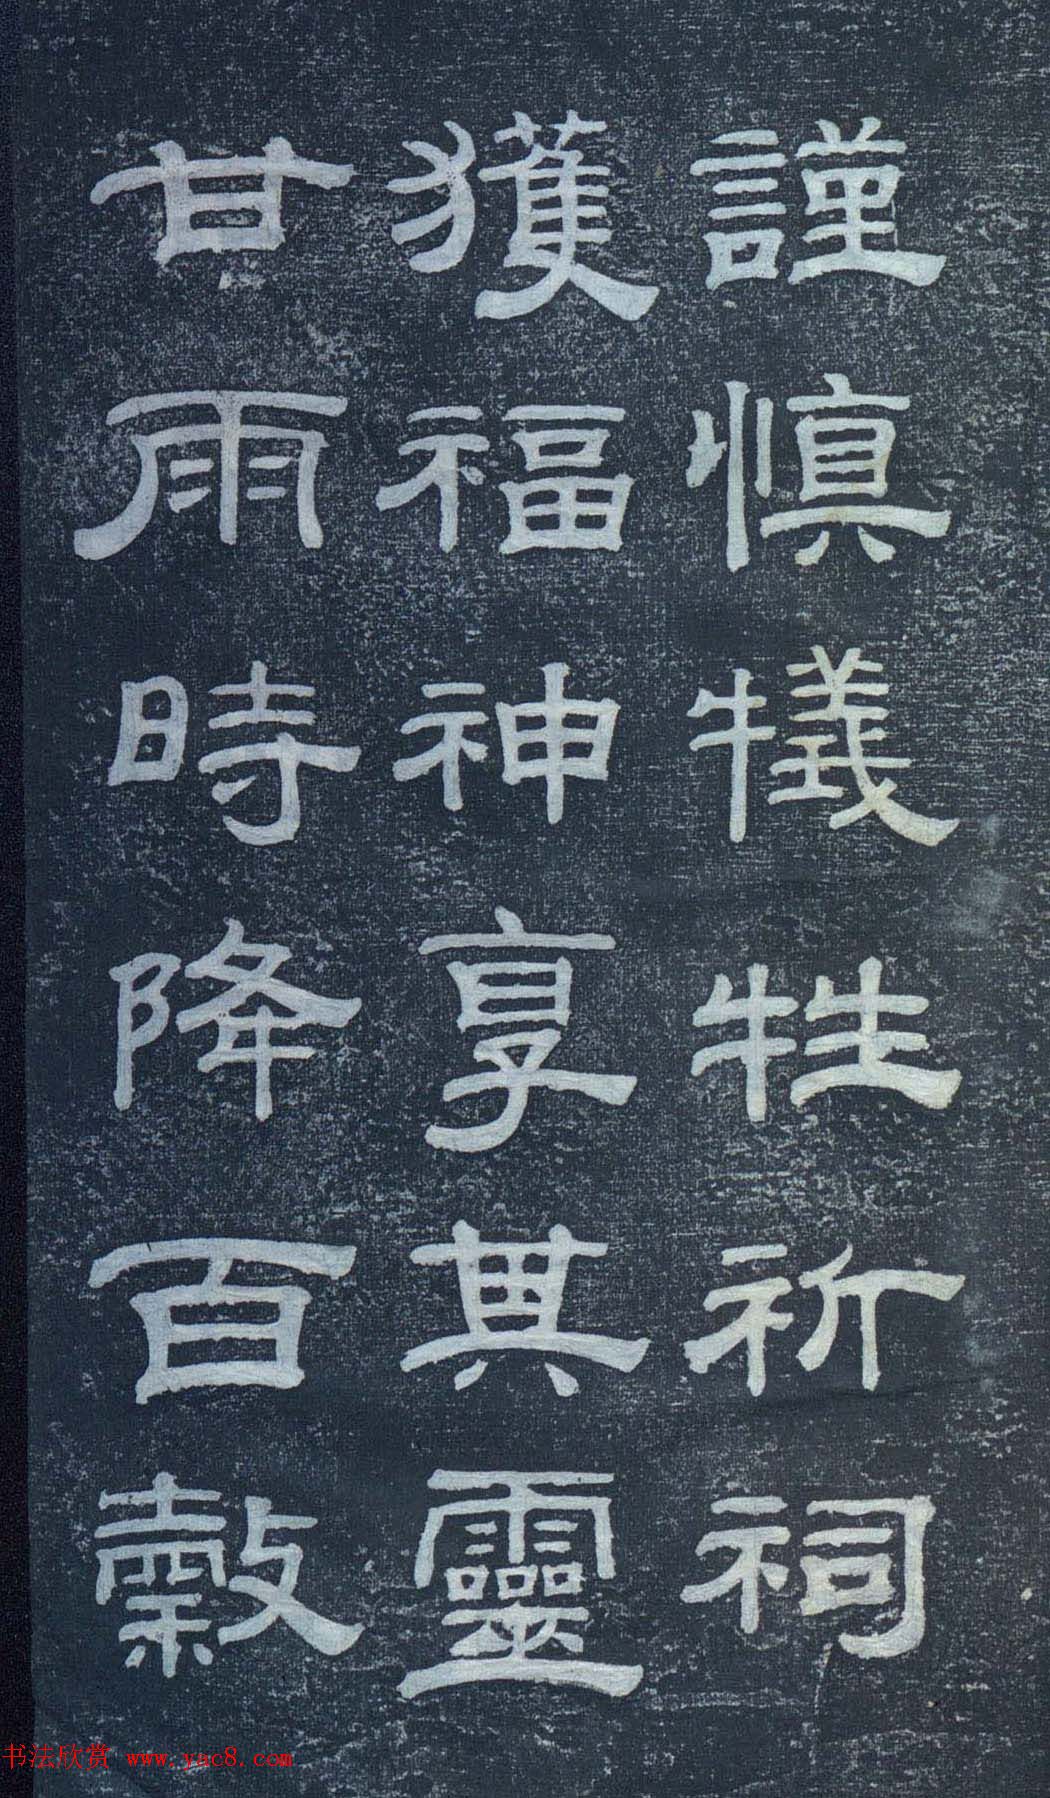 謹慎犠牲祈祠
獲福神享其靈
甘雨時降百穀
书法欣赏 www.yac8.com